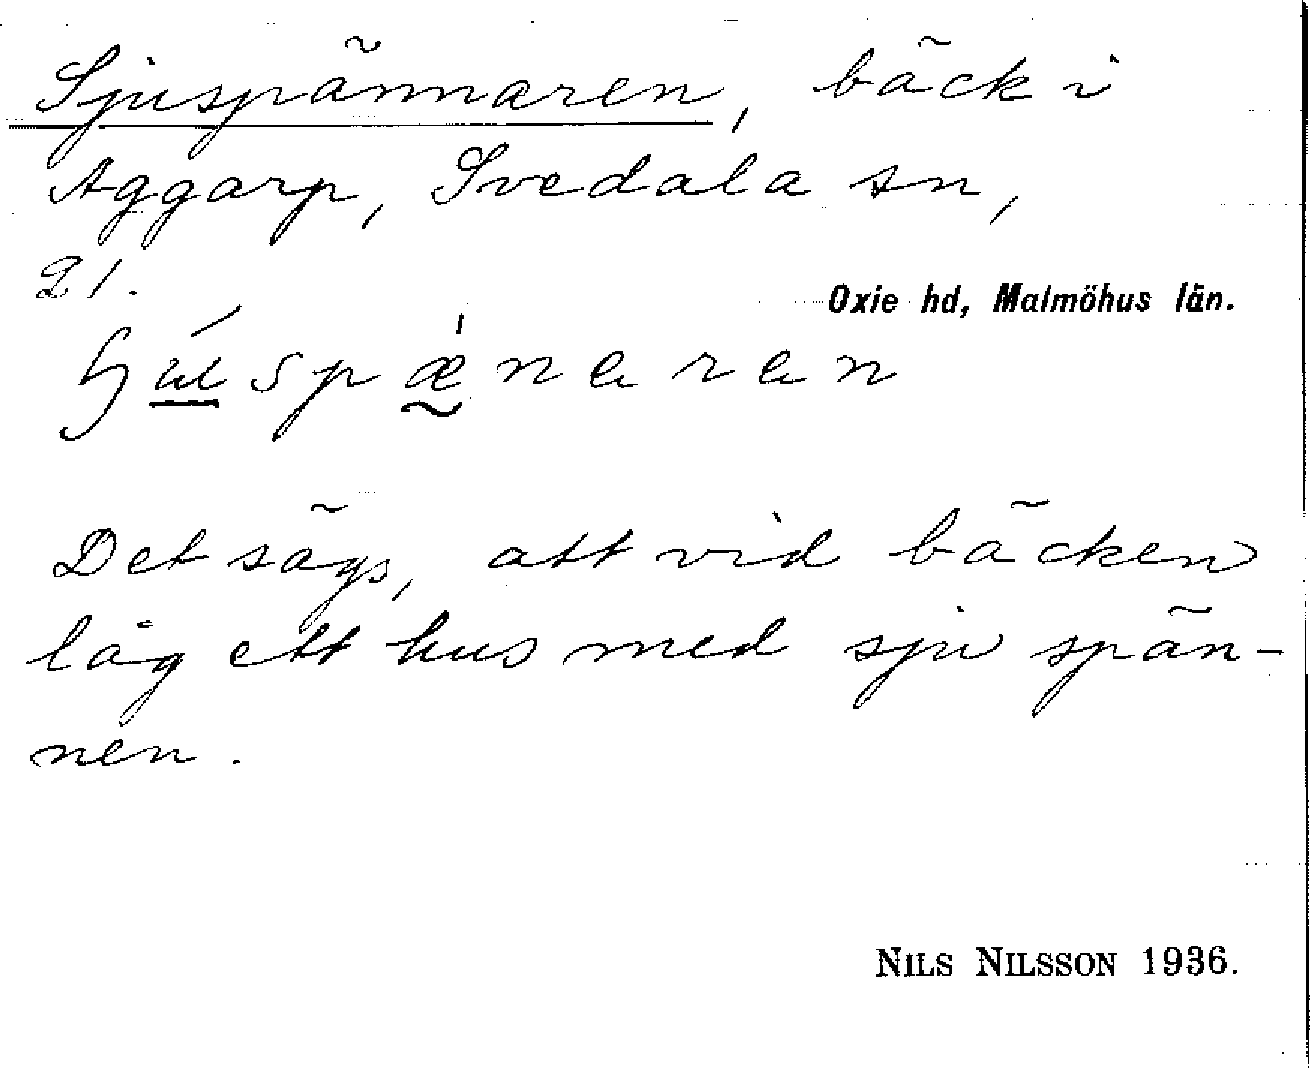 Sjuspännaren, bäck i
Aggarp, Svedala sn,
21.
Oxie hd, Malmöhus län.
Det sägs, att vid bäcken
låg ett hus med sju spän-
nen.
NILS NILSSON 1936.